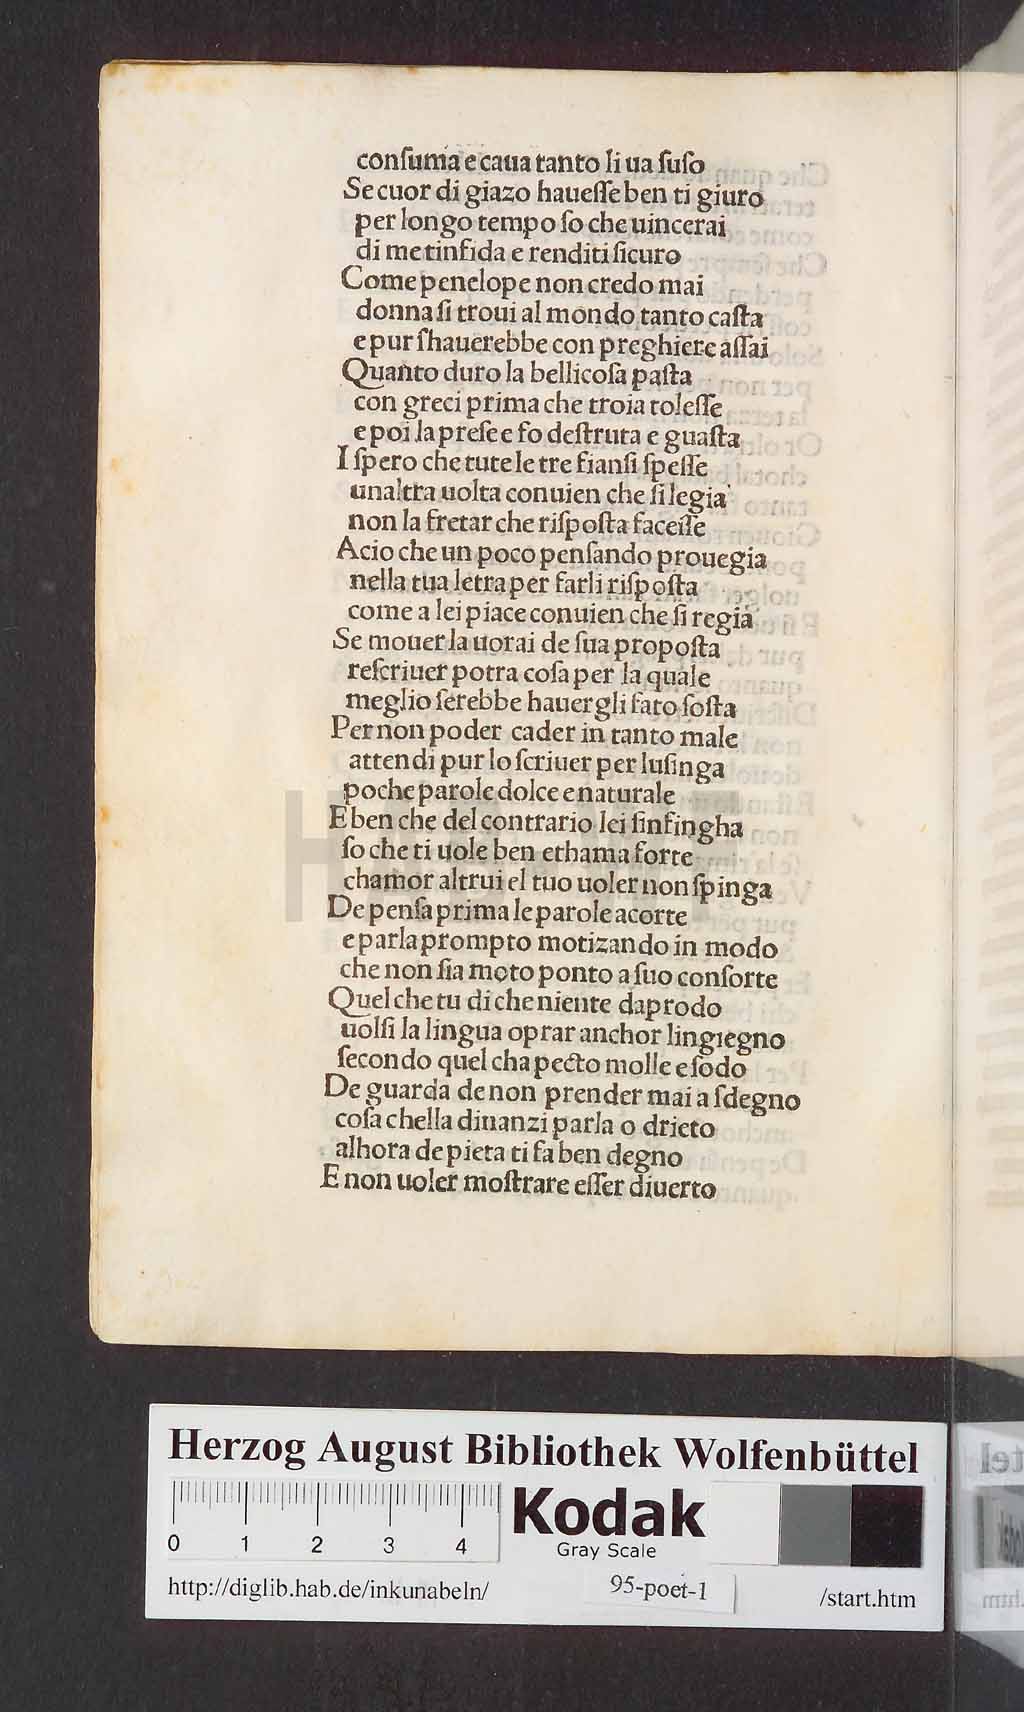 conſuma e caua tanto li ua ſuſo
Se cuor di giazo haueſſe ben ti giuro
per longo tempo ſo che uincerai
di me tinfida e renditi ſicuro
Come penelope non credo mai
donna ſi troui al mondo tanto caſta
e pur ſhauerebbe con preghiere aſſai
Quanto duro la bellicoſa paſta
con greci prima che troia toleſſe
e poi la preſe e fo deſtruta e guaſta
I ſpero che tute le tre fianſi ſpeſſe
unaltra uolta conuien che ſi legia
non la fretar che riſpoſta faceſſe
Acio che un poco penſando prouegia
nella tua letra per farli riſpoſta
come a lei piace conuien che ſi regia
Se mouer la uorai de ſua propoſta
reſcriuer potra coſa per la quale
meglio ſerebbe hauer gli fato ſoſta
Per non poder cader in tanto male
attendi pur lo ſcriuer per luſinga
poche parole dolce e naturale
E ben che del contrario lei ſinfingha
ſo che ti uole ben et hama forte
chamor altrui el tuo uoler non ſpinga
De penſa prima le parole acorte
e parla prompto motizando in modo
che non ſia moto ponto a ſuo conſorte
Quel che tu di che niente da prodo
uolſi la lingua oprar anchor lingiegno
ſecondo quel cha pecto molle e ſodo
De guarda de non prender mai a ſdegno
coſa chella dinanzi parla o drieto
alhora de pieta ti fa ben degno
E non uoler moſtrare eſſer diuerto
HAB
Herzog August Bibliothek Wolfenbüttel
0 1 2 3 4
Kodak
Gray Scale
http://diglib.hab.de/inkunabeln/
95-poet-1
/start.htm